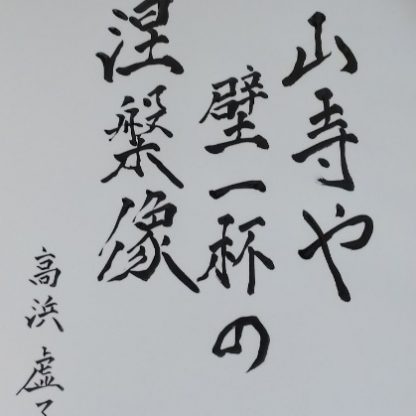 山寺や
壁一杯の
涅槃像
高浜虚子